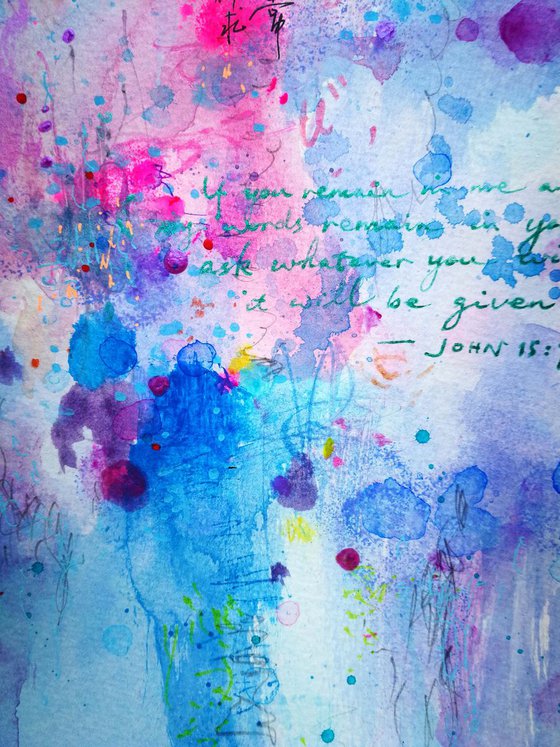 求 常
If you remain in me a
my words remain in yo
ask whatever you wi
it will be given
— JOHN 15:7